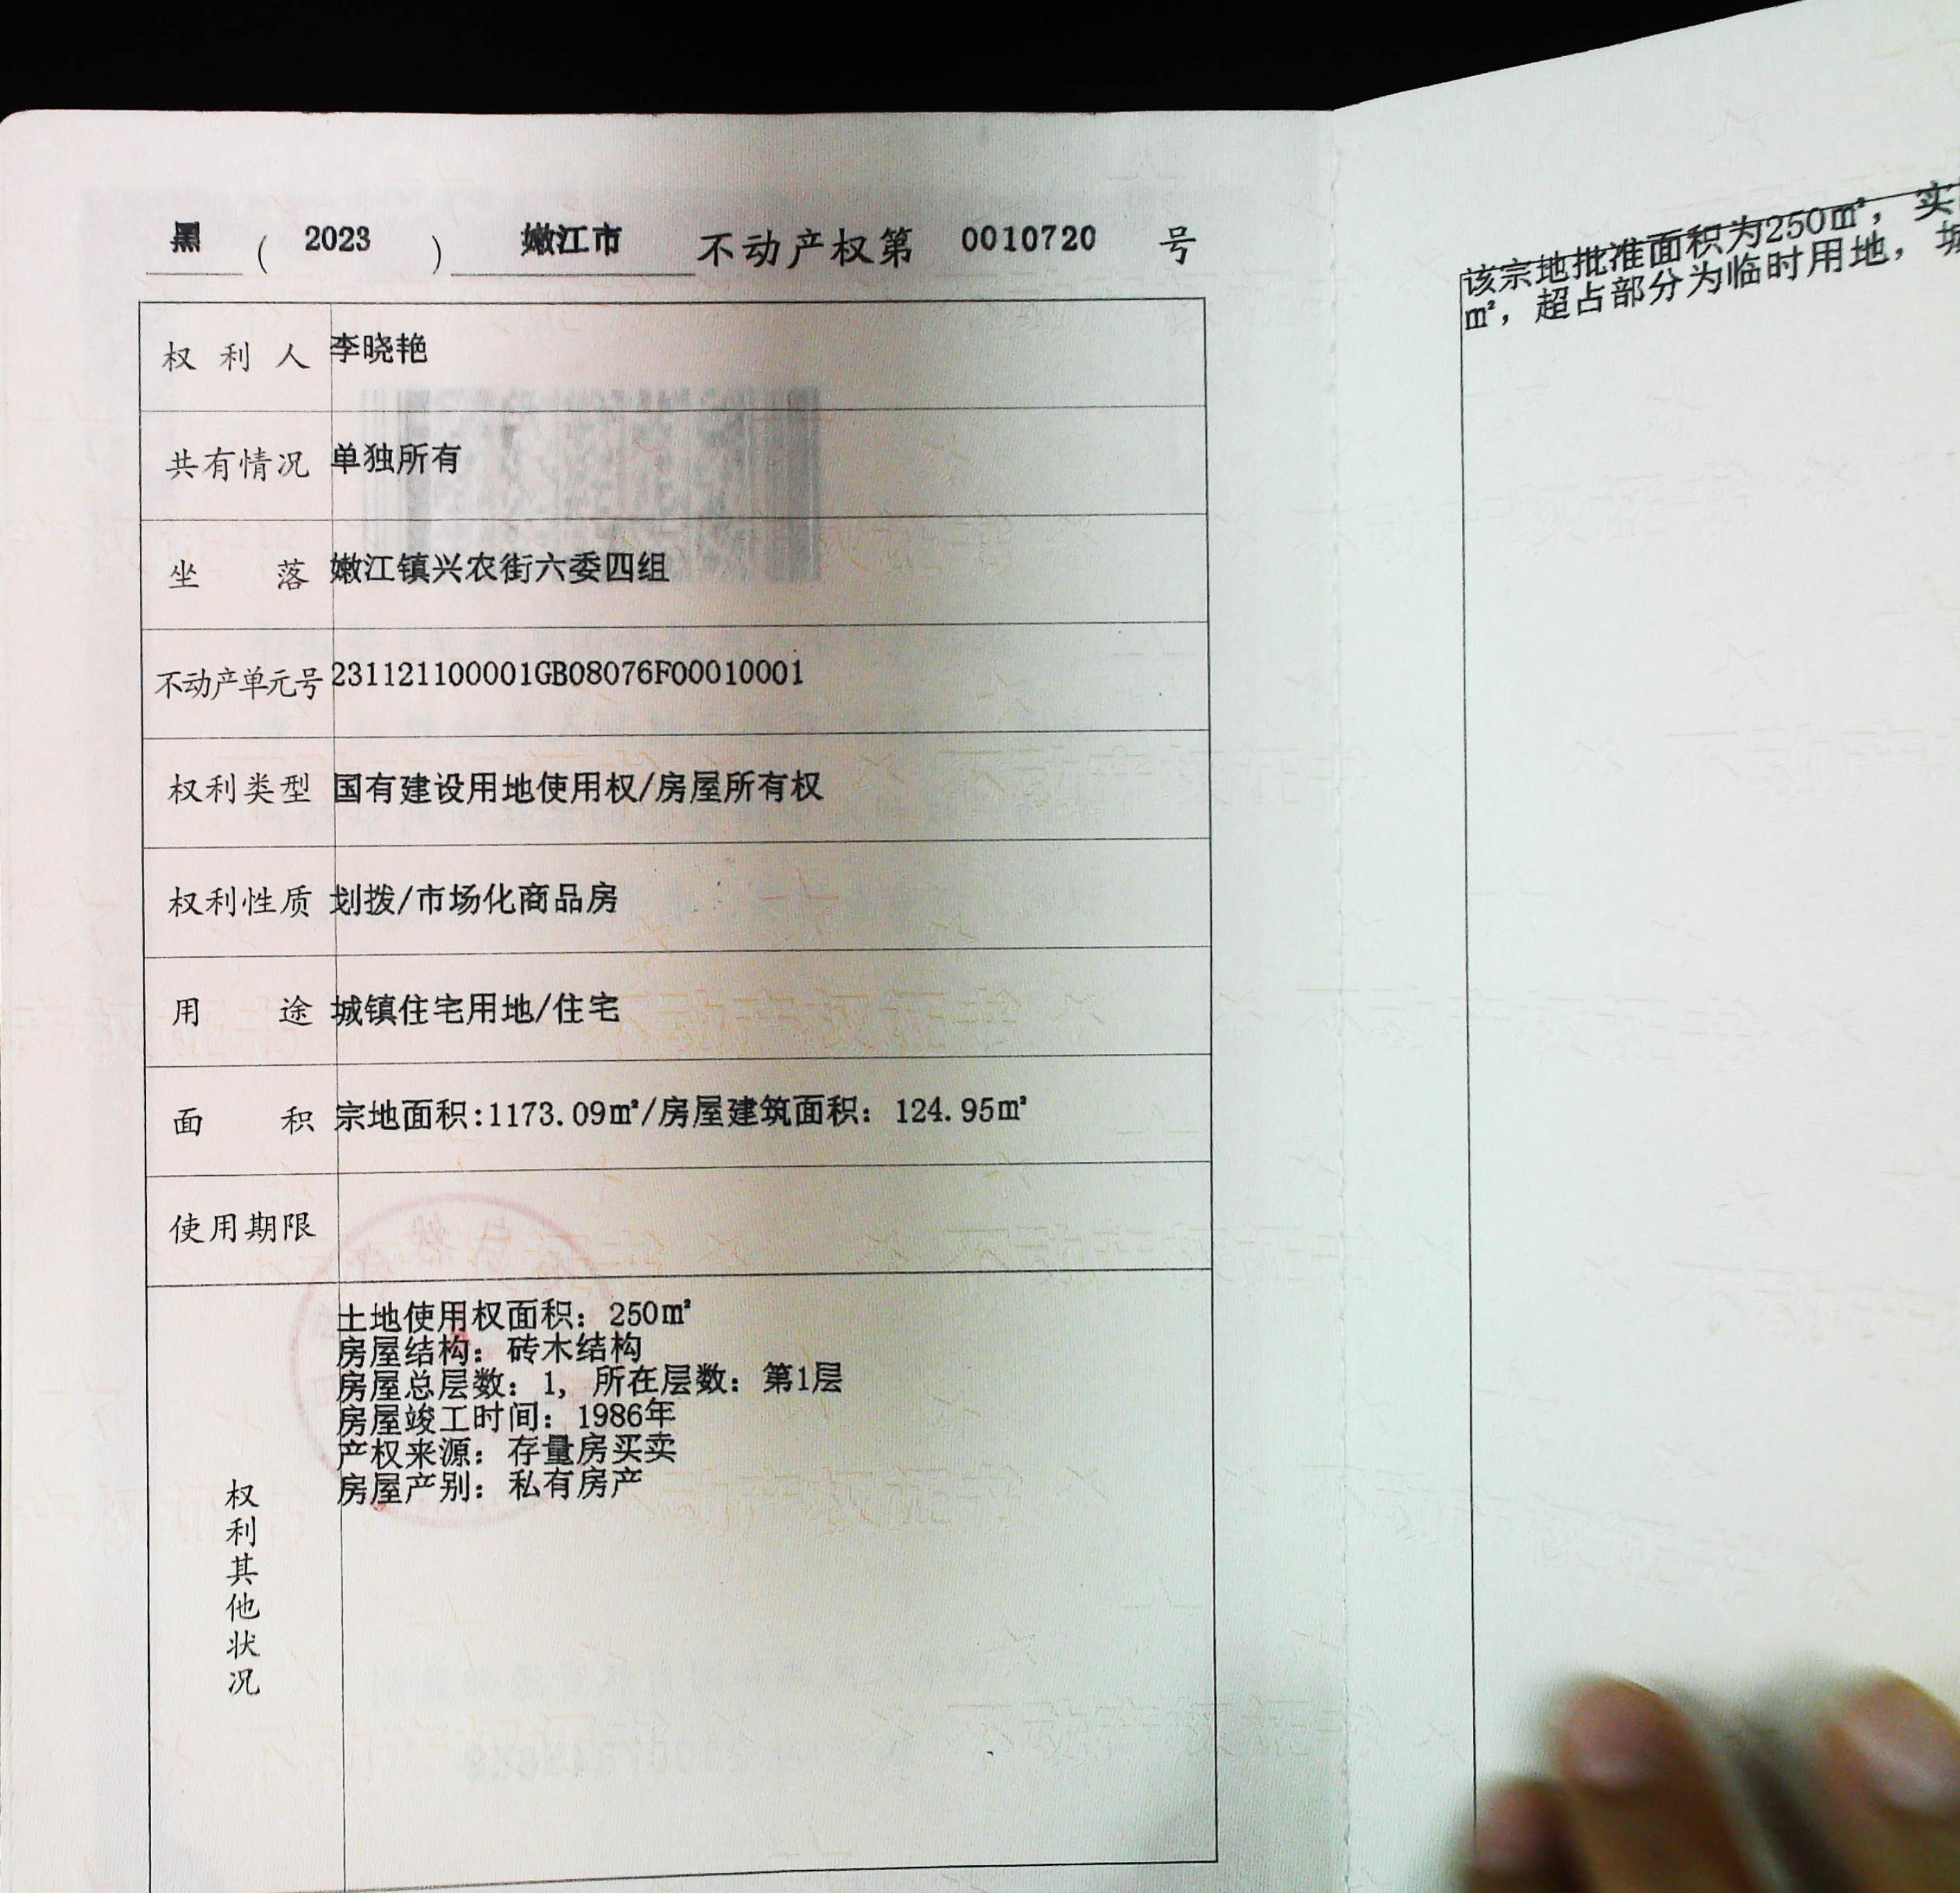 黑 ( 2023 ) 嫩江市 不动产权第 0010720 号
权利人 李晓艳
共有情况 单独所有
坐落 嫩江镇兴农街六委四组
不动产单元号 231121100001GB08076F00010001
权利类型 国有建设用地使用权/房屋所有权
权利性质 划拨/市场化商品房
用途 城镇住宅用地/住宅
面积 宗地面积:1173.09㎡/房屋建筑面积: 124.95㎡
使用期限
权利其他状况
土地使用权面积: 250㎡
房屋结构: 砖木结构
房屋总层数: 1, 所在层数: 第1层
房屋竣工时间: 1986年
产权来源: 存量房买卖
房屋产别: 私有房产
该宗地批准面积为250㎡, 实
㎡, 超占部分为临时用地,